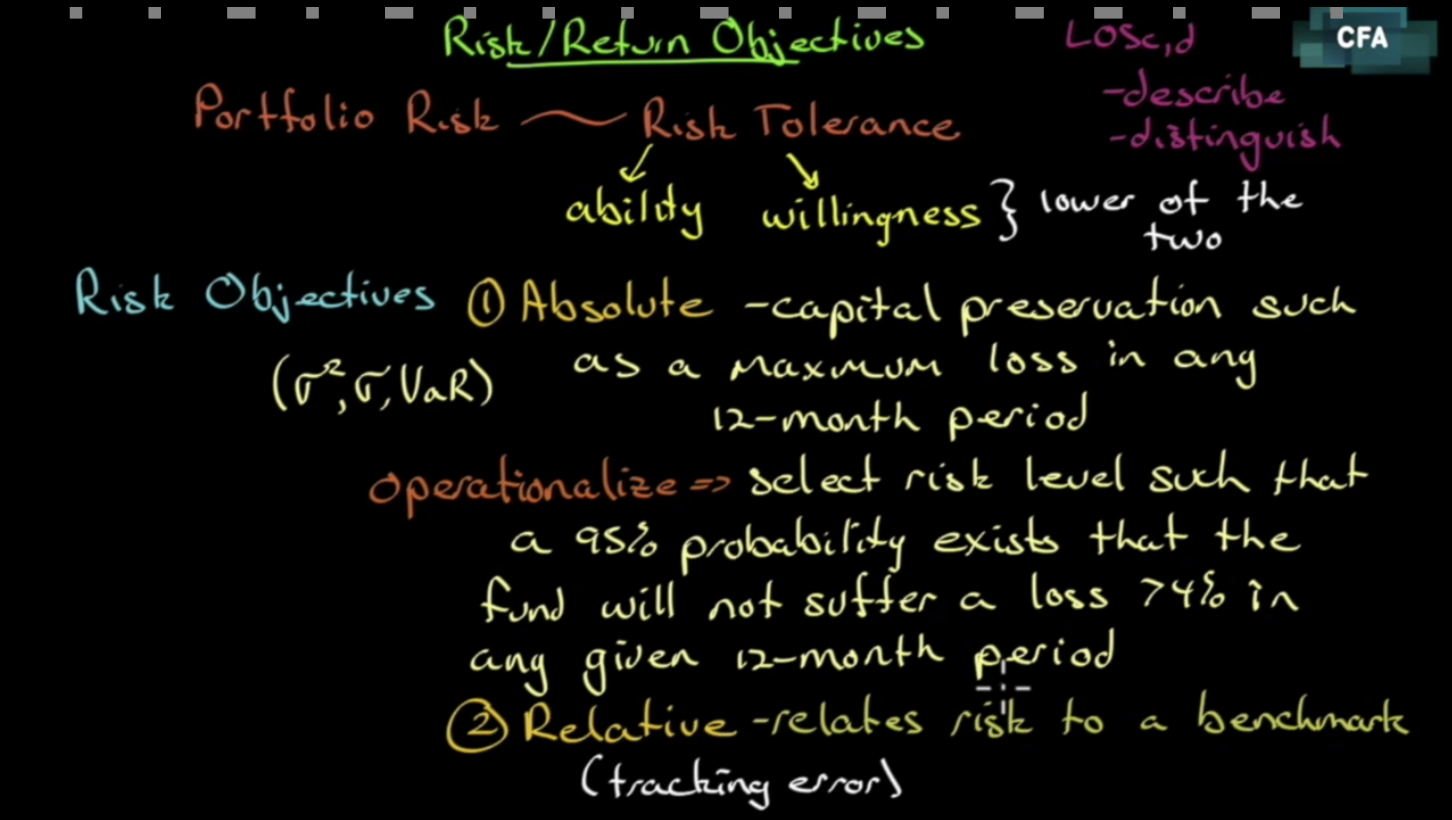 Risk/Return Objectives
LOSc,d
CFA
-describe
-distinguish
Portfolio Risk ~ Risk Tolerance
ability willingness } lower of the
two
Risk Objectives ① Absolute -capital preservation such
as a maximum loss in any
12-month period
(σ²,σ,VaR)
operationalize => select risk level such that
a 95% probability exists that the
fund will not suffer a loss >4% in
any given 12-month period
② Relative -relates risk to a benchmark
(tracking error)